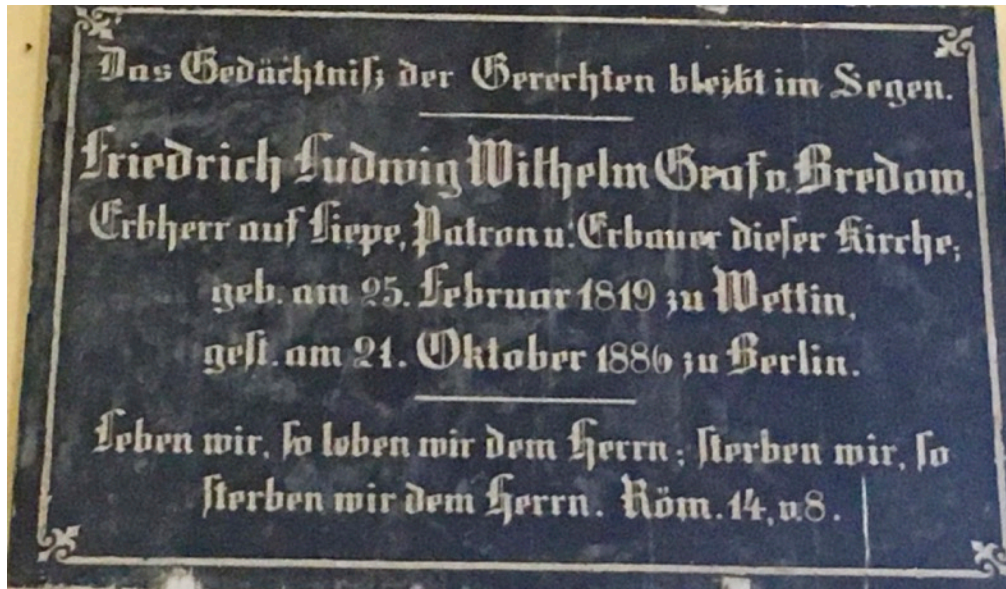 Das Gedächtniß der Gerechten bleibt im Segen.
Friedrich Ludwig Wilhelm Graf v. Bredow,
Erbherr auf Liepe, Patron u. Erbauer dieser Kirche;
geb. am 25. Februar 1819 zu Wettin,
gest. am 21. Oktober 1886 zu Berlin.
Leben wir, so leben wir dem Herrn; sterben wir, so
sterben wir dem Herrn. Röm. 14, v. 8.